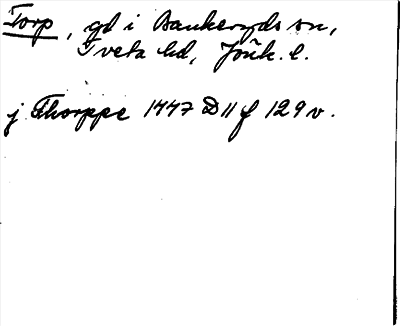 Torp, gd i Bankeryds sn,
Tveta hd, Jönk. l.
j Thorppe 1447 D 11 f 129 v.